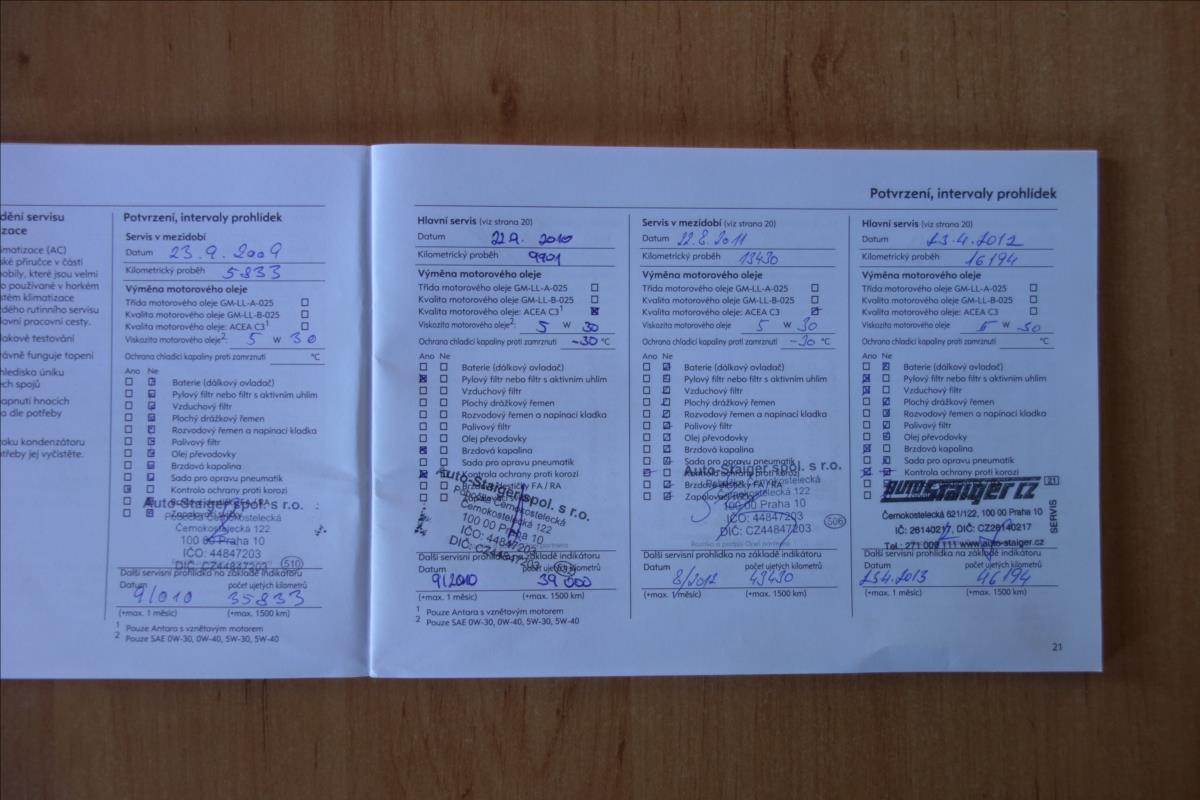 dění servisu
zace
imatizace (AC)
ské příručce v části
nobily, které jsou velmi
o používané v horkém
stém klimatizace
ždého rutinního servisu
lavní pracovní cesty.
lakové testování
rávně funguje topení
hlediska úniku
ech spojů
apnutí hnacích
a dle potřeby
roku kondenzátoru
třeby jej vyčistěte.
Potvrzení, intervaly prohlídek
Servis v mezidobí
Datum 23.9.2009
Kilometrický proběh 5833
Výměna motorového oleje
Třída motorového oleje GM-LL-A-025
Kvalita motorového oleje GM-LL-B-025
Kvalita motorového oleje: ACEA C3¹
Viskozita motorového oleje²: 5 W 30
Ochrana chladicí kapaliny proti zamrznutí °C
Ano Ne
Baterie (dálkový ovladač)
Pylový filtr nebo filtr s aktivním uhlím
Vzduchový filtr
Plochý drážkový řemen
Rozvodový řemen a napínací kladka
Palivový filtr
Olej převodovky
Brzdová kapalina
Sada pro opravu pneumatik
Kontrola ochrany proti korozi
Auto-Staiger spol. s r.o.
Pobočka Černokostelecká
Černokostelecká 122
100 00 Praha 10
IČO: 44847203
DIČ: CZ44847203 (510)
Další servisní prohlídka na základě indikátoru
Datum počet ujetých kilometrů
9/010 35833
(+max. 1 měsíc) (+max. 1500 km)
1 Pouze Antara s vznětovým motorem
2 Pouze SAE 0W-30, 0W-40, 5W-30, 5W-40
Potvrzení, intervaly prohlídek
Hlavní servis (viz strana 20)
Datum 22.9. 2010
Kilometrický proběh 9901
Výměna motorového oleje
Třída motorového oleje GM-LL-A-025
Kvalita motorového oleje GM-LL-B-025
Kvalita motorového oleje: ACEA C3¹
Viskozita motorového oleje²: 5 W 30
Ochrana chladicí kapaliny proti zamrznutí -30 °C
Ano Ne
Baterie (dálkový ovladač)
Pylový filtr nebo filtr s aktivním uhlím
Vzduchový filtr
Plochý drážkový řemen
Rozvodový řemen a napínací kladka
Palivový filtr
Olej převodovky
Brzdová kapalina
Sada pro opravu pneumatik
Kontrola ochrany proti korozi
Brzdové destičky FA / RA
Auto-Staiger spol. s r.o.
Pobočka Černokostelecká
Černokostelecká 122
100 00 Praha 10
IČO: 44847203
DIČ: CZ44847203
Další servisní prohlídka na základě indikátoru
Datum počet ujetých kilometrů
9/2010 39 000
(+max. 1 měsíc) (+max. 1500 km)
1 Pouze Antara s vznětovým motorem
2 Pouze SAE 0W-30, 0W-40, 5W-30, 5W-40
Servis v mezidobí (viz strana 20)
Datum 22.8.2011
Kilometrický proběh 13430
Výměna motorového oleje
Třída motorového oleje GM-LL-A-025
Kvalita motorového oleje GM-LL-B-025
Kvalita motorového oleje: ACEA C3
Viskozita motorového oleje 5 W 30
Ochrana chladicí kapaliny proti zamrznutí -30 °C
Ano Ne
Baterie (dálkový ovladač)
Pylový filtr nebo filtr s aktivním uhlím
Vzduchový filtr
Plochý drážkový řemen
Rozvodový řemen a napínací kladka
Palivový filtr
Olej převodovky
Brzdová kapalina
Sada pro opravu pneumatik
Kontrola ochrany proti korozi
Brzdové destičky FA / RA
Zapalovací svíčky
Auto-Staiger spol. s r.o.
Pobočka Černokostelecká
Černokostelecká 122
100 00 Praha 10
IČO: 44847203
DIČ: CZ44847203 (506)
Razítko a podpis Opel partnera
Další servisní prohlídka na základě indikátoru
Datum počet ujetých kilometrů
8/2012 43430
(+max. 1 měsíc) (+max. 1500 km)
Hlavní servis (viz strana 20)
Datum 23.4.2012
Kilometrický proběh 16194
Výměna motorového oleje
Třída motorového oleje GM-LL-A-025
Kvalita motorového oleje GM-LL-B-025
Kvalita motorového oleje: ACEA C3
Viskozita motorového oleje 5 W 30
Ochrana chladicí kapaliny proti zamrznutí °C
Ano Ne
Baterie (dálkový ovladač)
Pylový filtr nebo filtr s aktivním uhlím
Vzduchový filtr
Plochý drážkový řemen
Rozvodový řemen a napínací kladka
Palivový filtr
Olej převodovky
Brzdová kapalina
Sada pro opravu pneumatik
Kontrola ochrany proti korozi
AUTO STAIGER CZ 21
Černokostelecká 621/122, 100 00 Praha 10
IČ: 26140217, DIČ: CZ26140217
Tel.: 271 002 111 www.auto-staiger.cz
SERVIS
Další servisní prohlídka na základě indikátoru
Datum počet ujetých kilometrů
23.4.2013 46194
(+max. 1 měsíc) (+max. 1500 km)
21